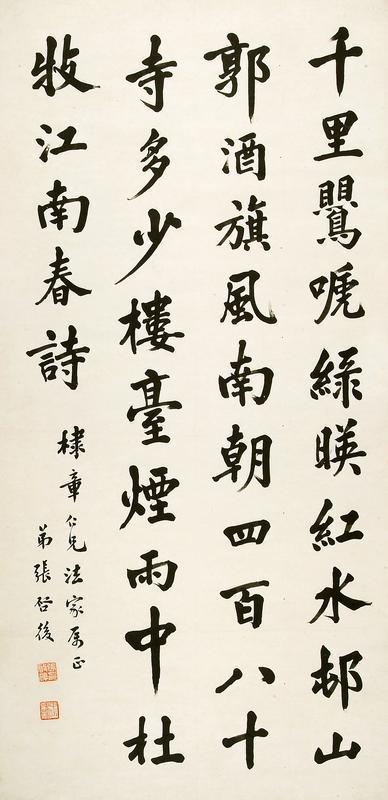 千里鸎嗁綠暎紅水邨山
郭酒旗風南朝四百八十
寺多少樓臺煙雨中杜
牧江南春詩
棣章仁兄法家屬正
弟張啓後